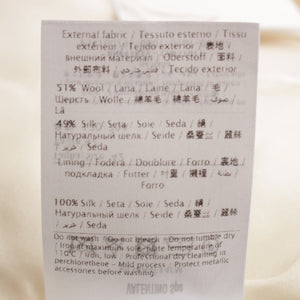 External fabric / Tessuto esterno / Tissu
extérieur / Tejido exterior / 表地
/ внешний материал / Oberstoff / 面料
/ 外部布料 / / Tecido exterior
51% Wool / Lana / Laine / Lana / 毛 /
Шерсть / Wolle / 绵羊毛 / 綿羊毛 / صوف /
Lã
49% Silk / Seta / Soie / Seda / 絹 /
Натуральный шелк / Seide / 桑蚕丝 / 蠶絲
/ حرير / Seda
Lining / Fodera / Doublure / Forro / 裏地 /
подкладка / Futter / 里料 / 襯裡 / بطانة /
Forro
100% Silk / Seta / Soie / Seda / 絹 /
Натуральный шелк / Seide / 桑蚕丝 / 蠶絲
/ حرير / Seda
Do not wash / Do not bleach / Do not tumble dry
/ Iron at maximum sole-plate temperature of
110°C / Iron, low / Professional dry cleaning in
perchloroethene – Mild process / Protect metallic
accessories before washing